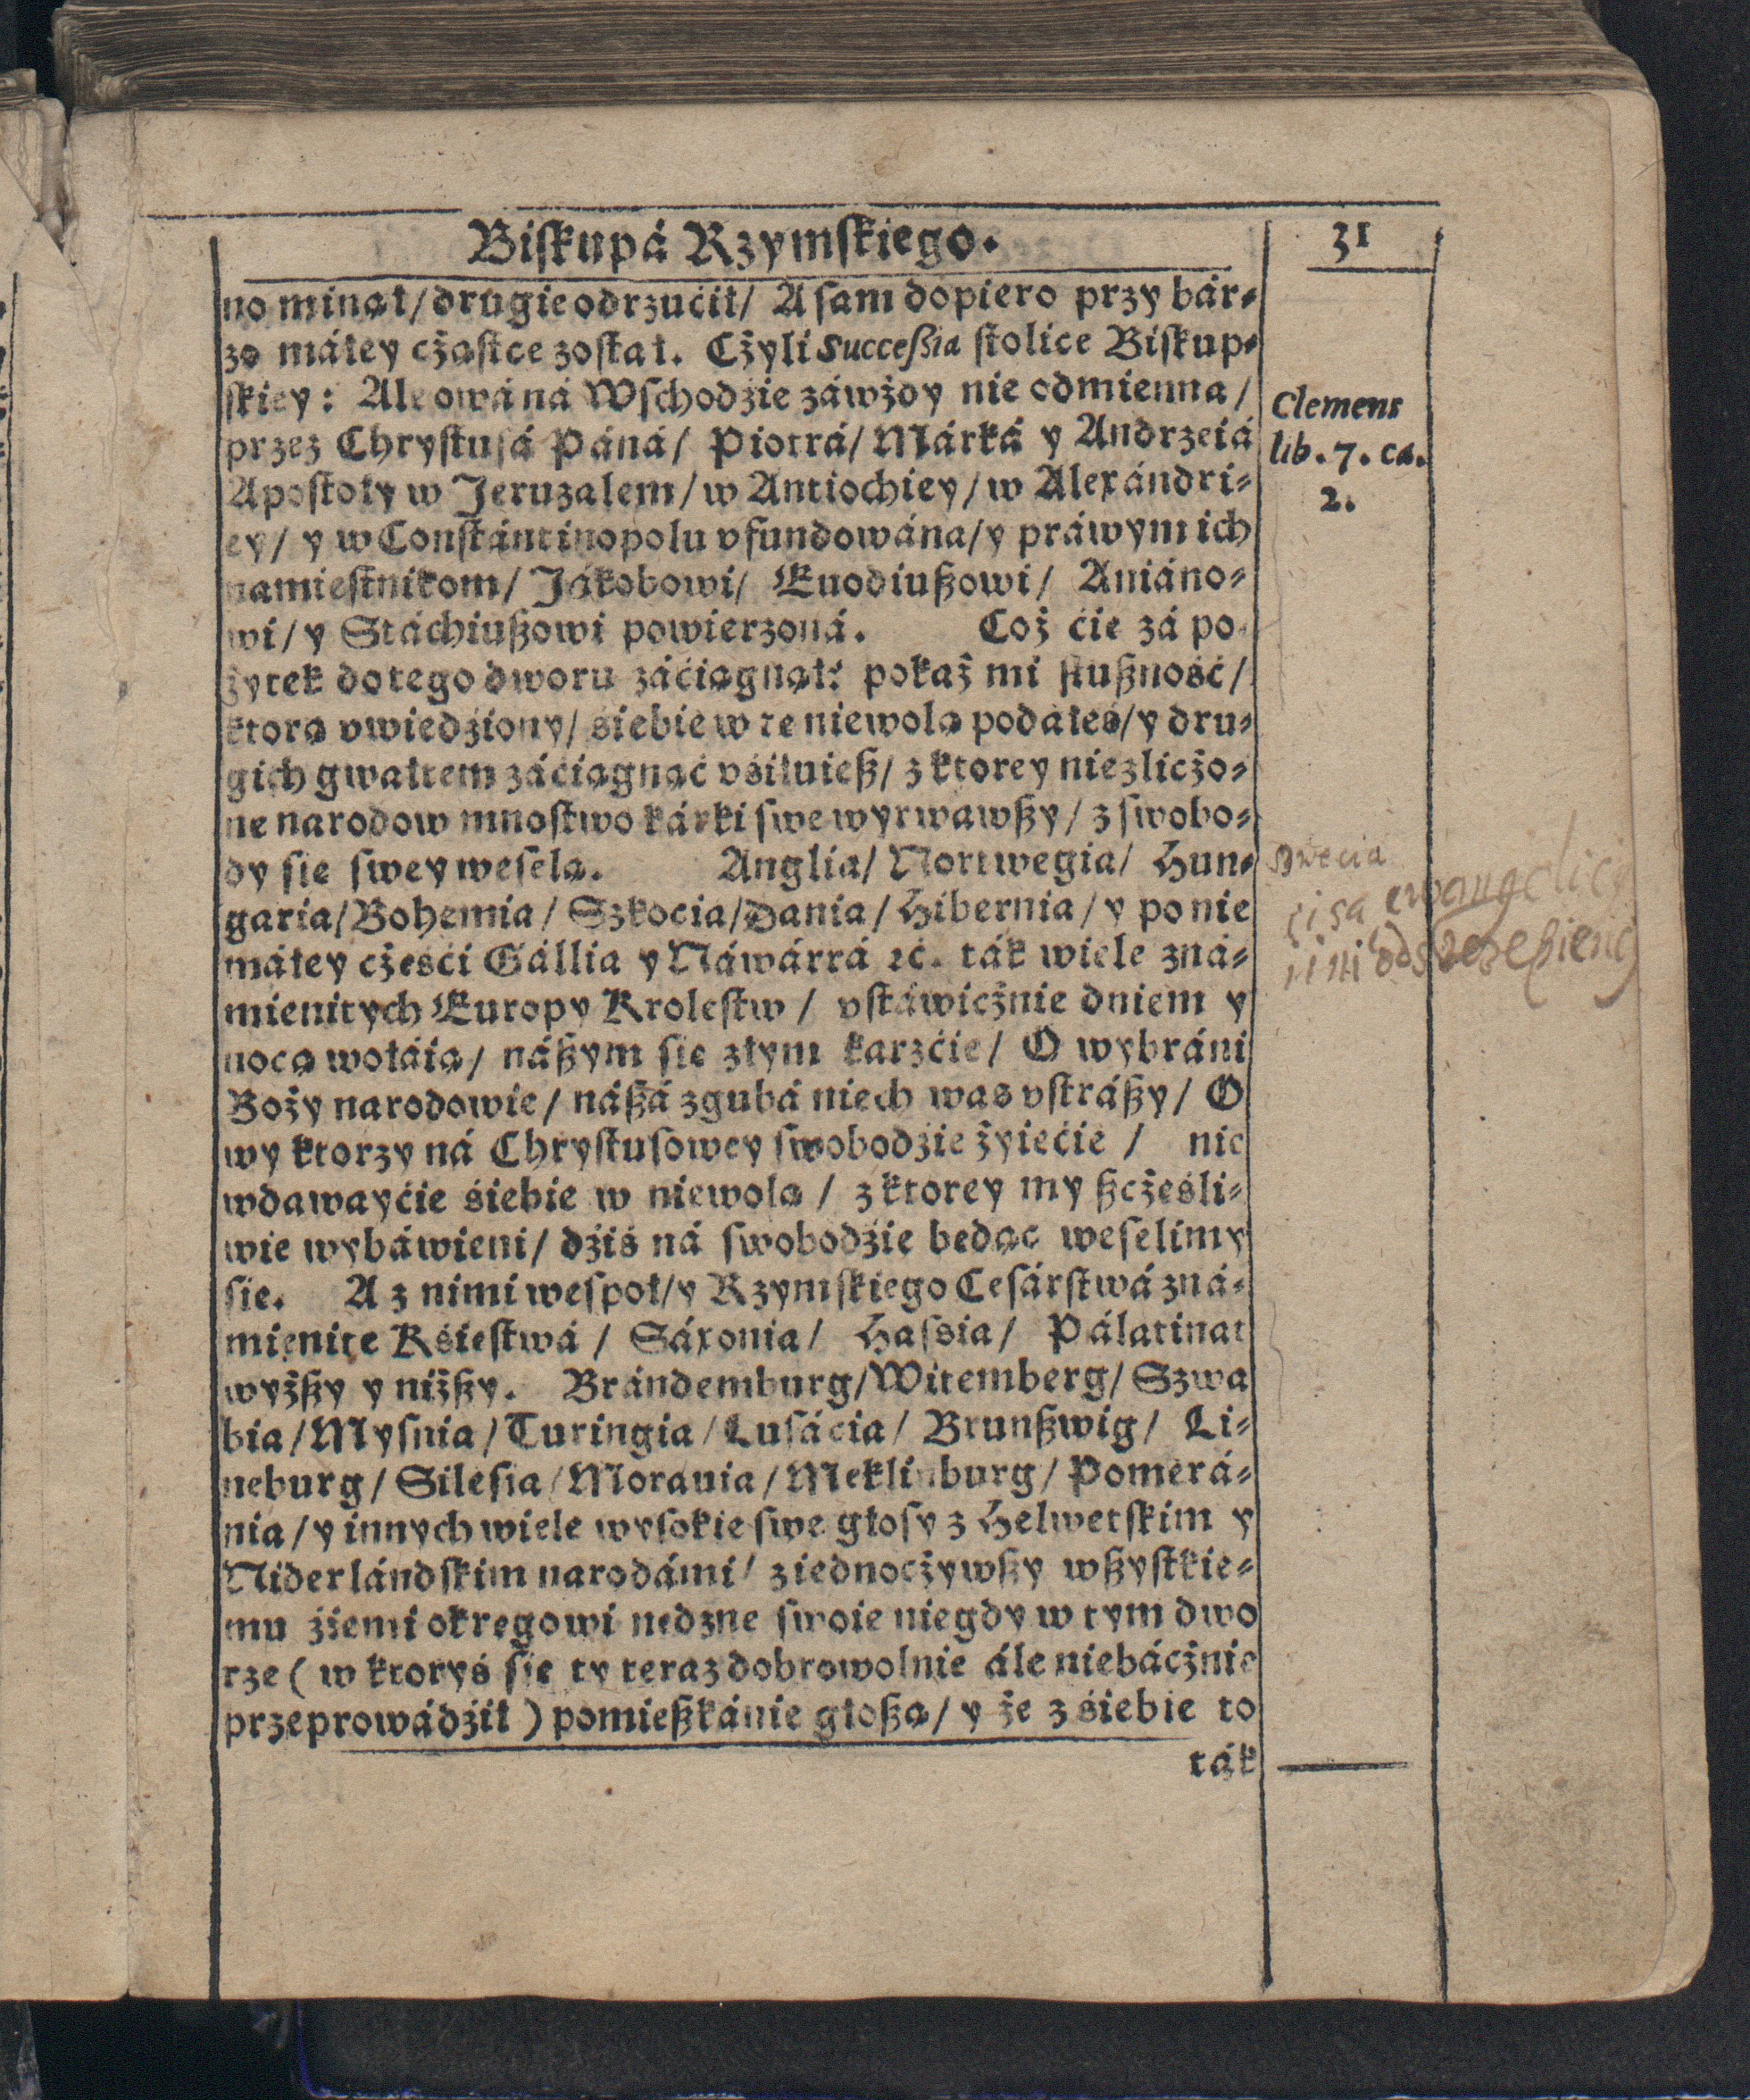 Biskupá Rzymskiego.
31
no minął/drugie odrzućił/ A sam dopiero przy bár⸗
zo máłey cżąstce został. Cżyli Successia stolice Biskup⸗
skiey: Ale owá ná Wschodźie záwżdy nie odmienna/
przez Chrystusá Páná/ Piotrá/ Márká y Andrzeiá
Apostoły w Jeruzalem/w Antiochiey/w Alexándri⸗
ey/ y w Constántinopolu vfundowána/y práwym ich
namiestnikom/ Jákobowi/ Euodiuszowi/ Aniáno⸗
wi/y Stáchiuszowi powierzoná. Coż ćie zá po
żytek do tego dworu záćiągnął: pokaż mi słuszność/
ktorą vwiedźiony/ śiebie w te niewolą podałeś/y dru⸗
gich gwałtem záćiągnąć vśiłuiesz/ z ktorey niezlicżo⸗
ne narodow mnostwo kárki swe wyrwawszy/ z swobo⸗
dy sie swey weselą. Anglia/ Nortwegia/ Hun⸗
garia/Bohemia/ Szkocia/Dania/Hibernia/y po nie
máłey cżeśći Gállia y Náwárrá ꝛć. ták wiele zná⸗
mienitych Europy Krolestw/ vstáwicżnie dniem y
nocą wołáią/ nászym sie złym karzćie/ O wybráni
Boży narodowie/ nászá zgubá niech was vstrászy/ O
wy ktorzy ná Chrystusowey swobodźie żyiećie/ nie
wdawayćie śiebie w niewolą/ z ktorey my szcżeśli⸗
wie wybáwieni/ dźiś ná swobodźie bedąc weselimy
sie. A z nimi wespoł/y Rzymskiego Cesárstwá zná⸗
mienite Kśiestwá/ Sáxonia/ Hassia/ Pálatinat
wyższy y niższy. Brándemburg/Witemberg/Szwa
bia/Mysnia/Turingia/Lusácia/ Brunszwig/ Li⸗
neburg/Silesia/Morauia/Meklinburg/Pomerá⸗
nia/y innych wiele wysokie swe głosy z Helwetskim y
Niderlándskim narodámi/ ziednocżywszy wszystkie⸗
mu źiemi okręgowi nedzne swoie niegdy w tym dwo
rze (w ktoryś sie ty teraz dobrowolnie ále niebácżnie
przeprowádźił) pomieszkánie głoszą/ y że z śiebie to
ták
Clemens
lib. 7. ca.
2.
Swecia
ci są ewangelicy
i ni odszczepieńcy